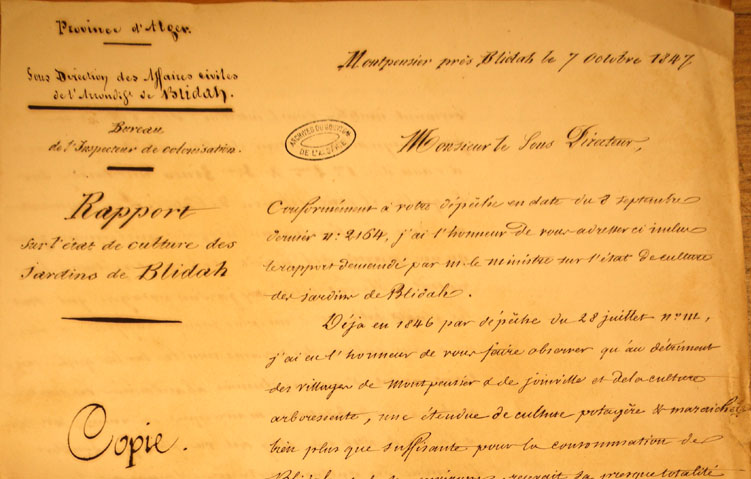 Province d'Alger.
Sous Direction des Affaires civiles
de l'Arrondist. de Blidah.
Bureau
de l'Inspecteur de colonisation.
Rapport
sur l'état de culture des
Jardins de Blidah
Copie.
Montpensier près Blidah le 7 Octobre 1847
ARCHIVES DU GOUVGEN
DE L'ALGÉRIE
Monsieur le Sous Directeur,
Conformément à votre dépêche en date du 8 septembre
dernier n.° 2164, j'ai l'honneur de vous adresser ci inclus
le rapport demandé par m. le ministre sur l'état de culture
des jardins de Blidah.
Déja en 1846 par dépêche du 28 juillet n.°
j'ai eu l'honneur de vous faire observer qu'au détriment
des villages de Montpensier & de joinville et de la culture
arborescente, une étendue de culture potagère & maraichère
bien plus que suffisante pour la consommation de
Blidah recevait sa presque totalité